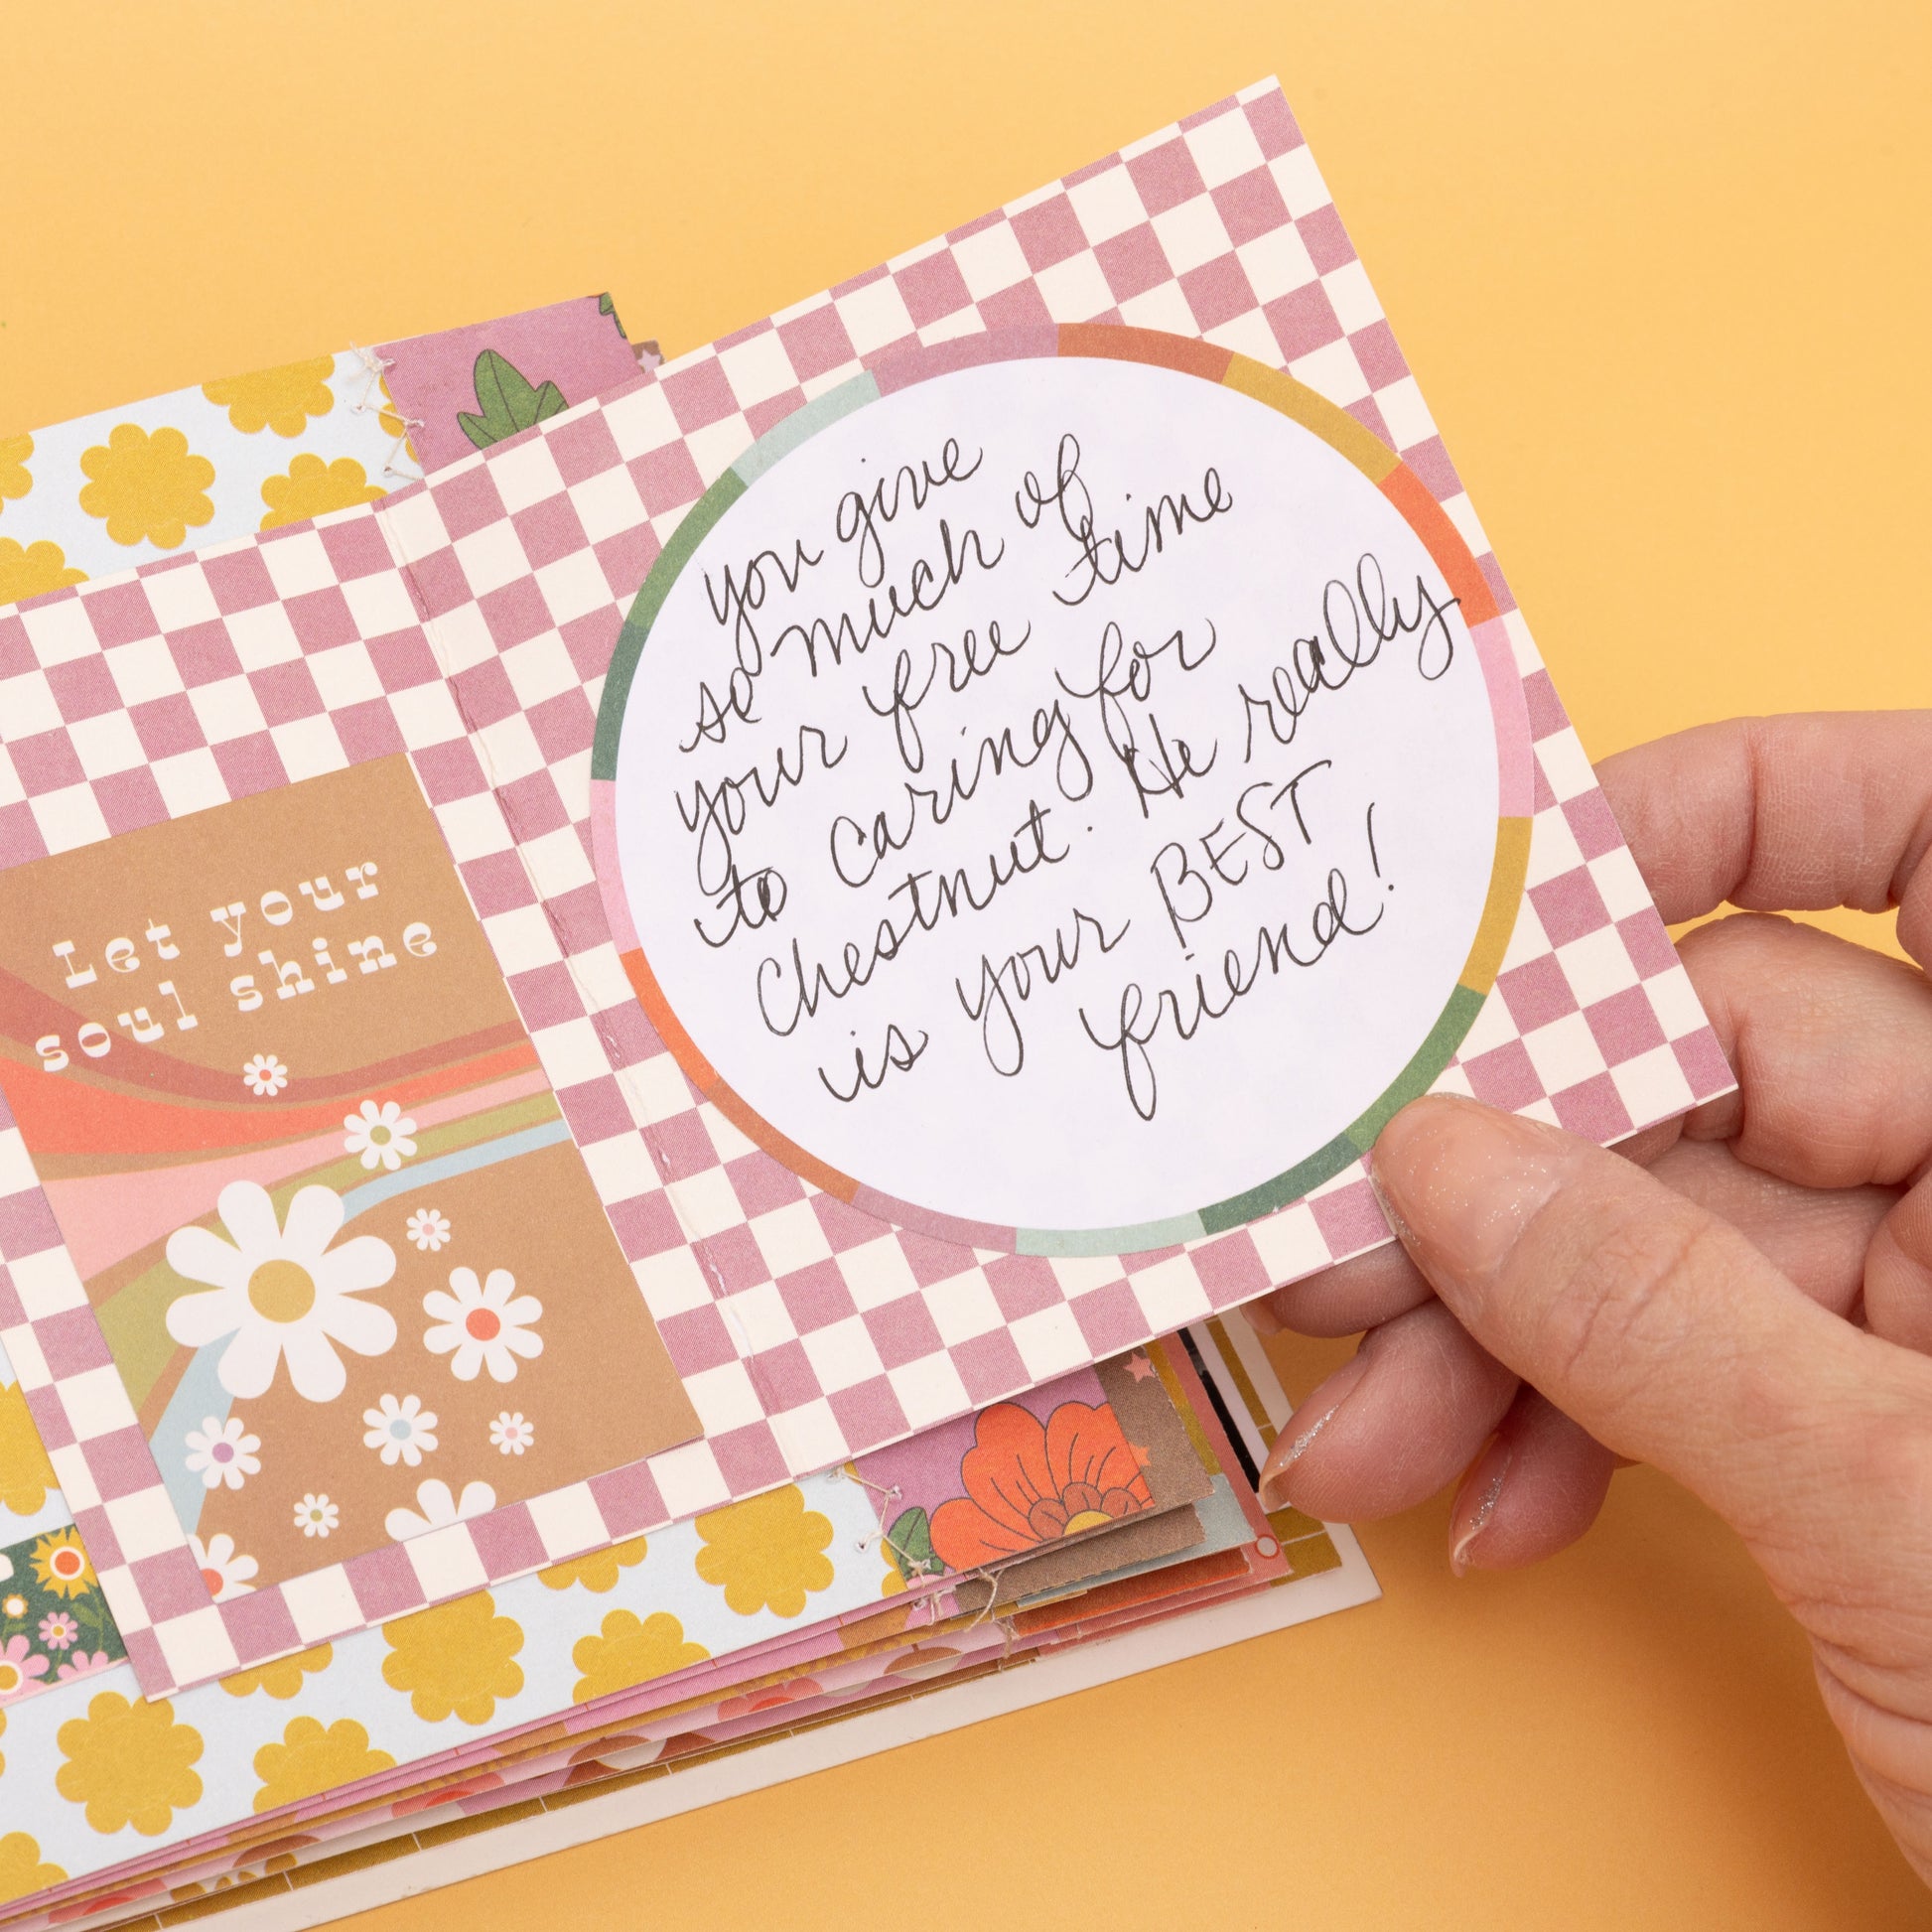 Let your
soul shine
you give
so much of
your free time
to caring for
Chestnut. He really
is your BEST
friend!